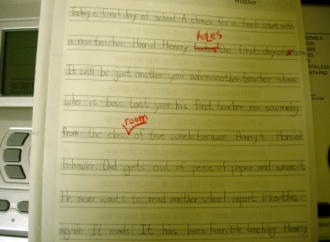 Today is first day of school. A chance for a fresh start with
a new teacher. Horrid Henry hates the first day of
It will be just another year with another teacher
who is boss. Last year his first teacher ran screaming
room
from the class of two weeks because Henry's Horrid
behavior. Dad gets out a peice of paper and waves it
He never wants to read another school report like this
again. It reads: It has been horrible teaching Henry